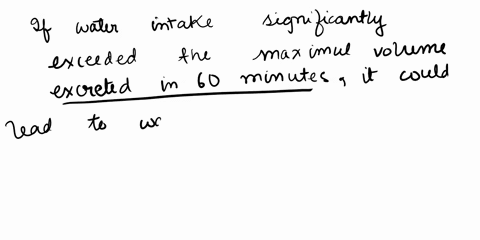 If water intake significantly
exceeded the maximul volume
excreted in 60 minutes, it could
lead to wx